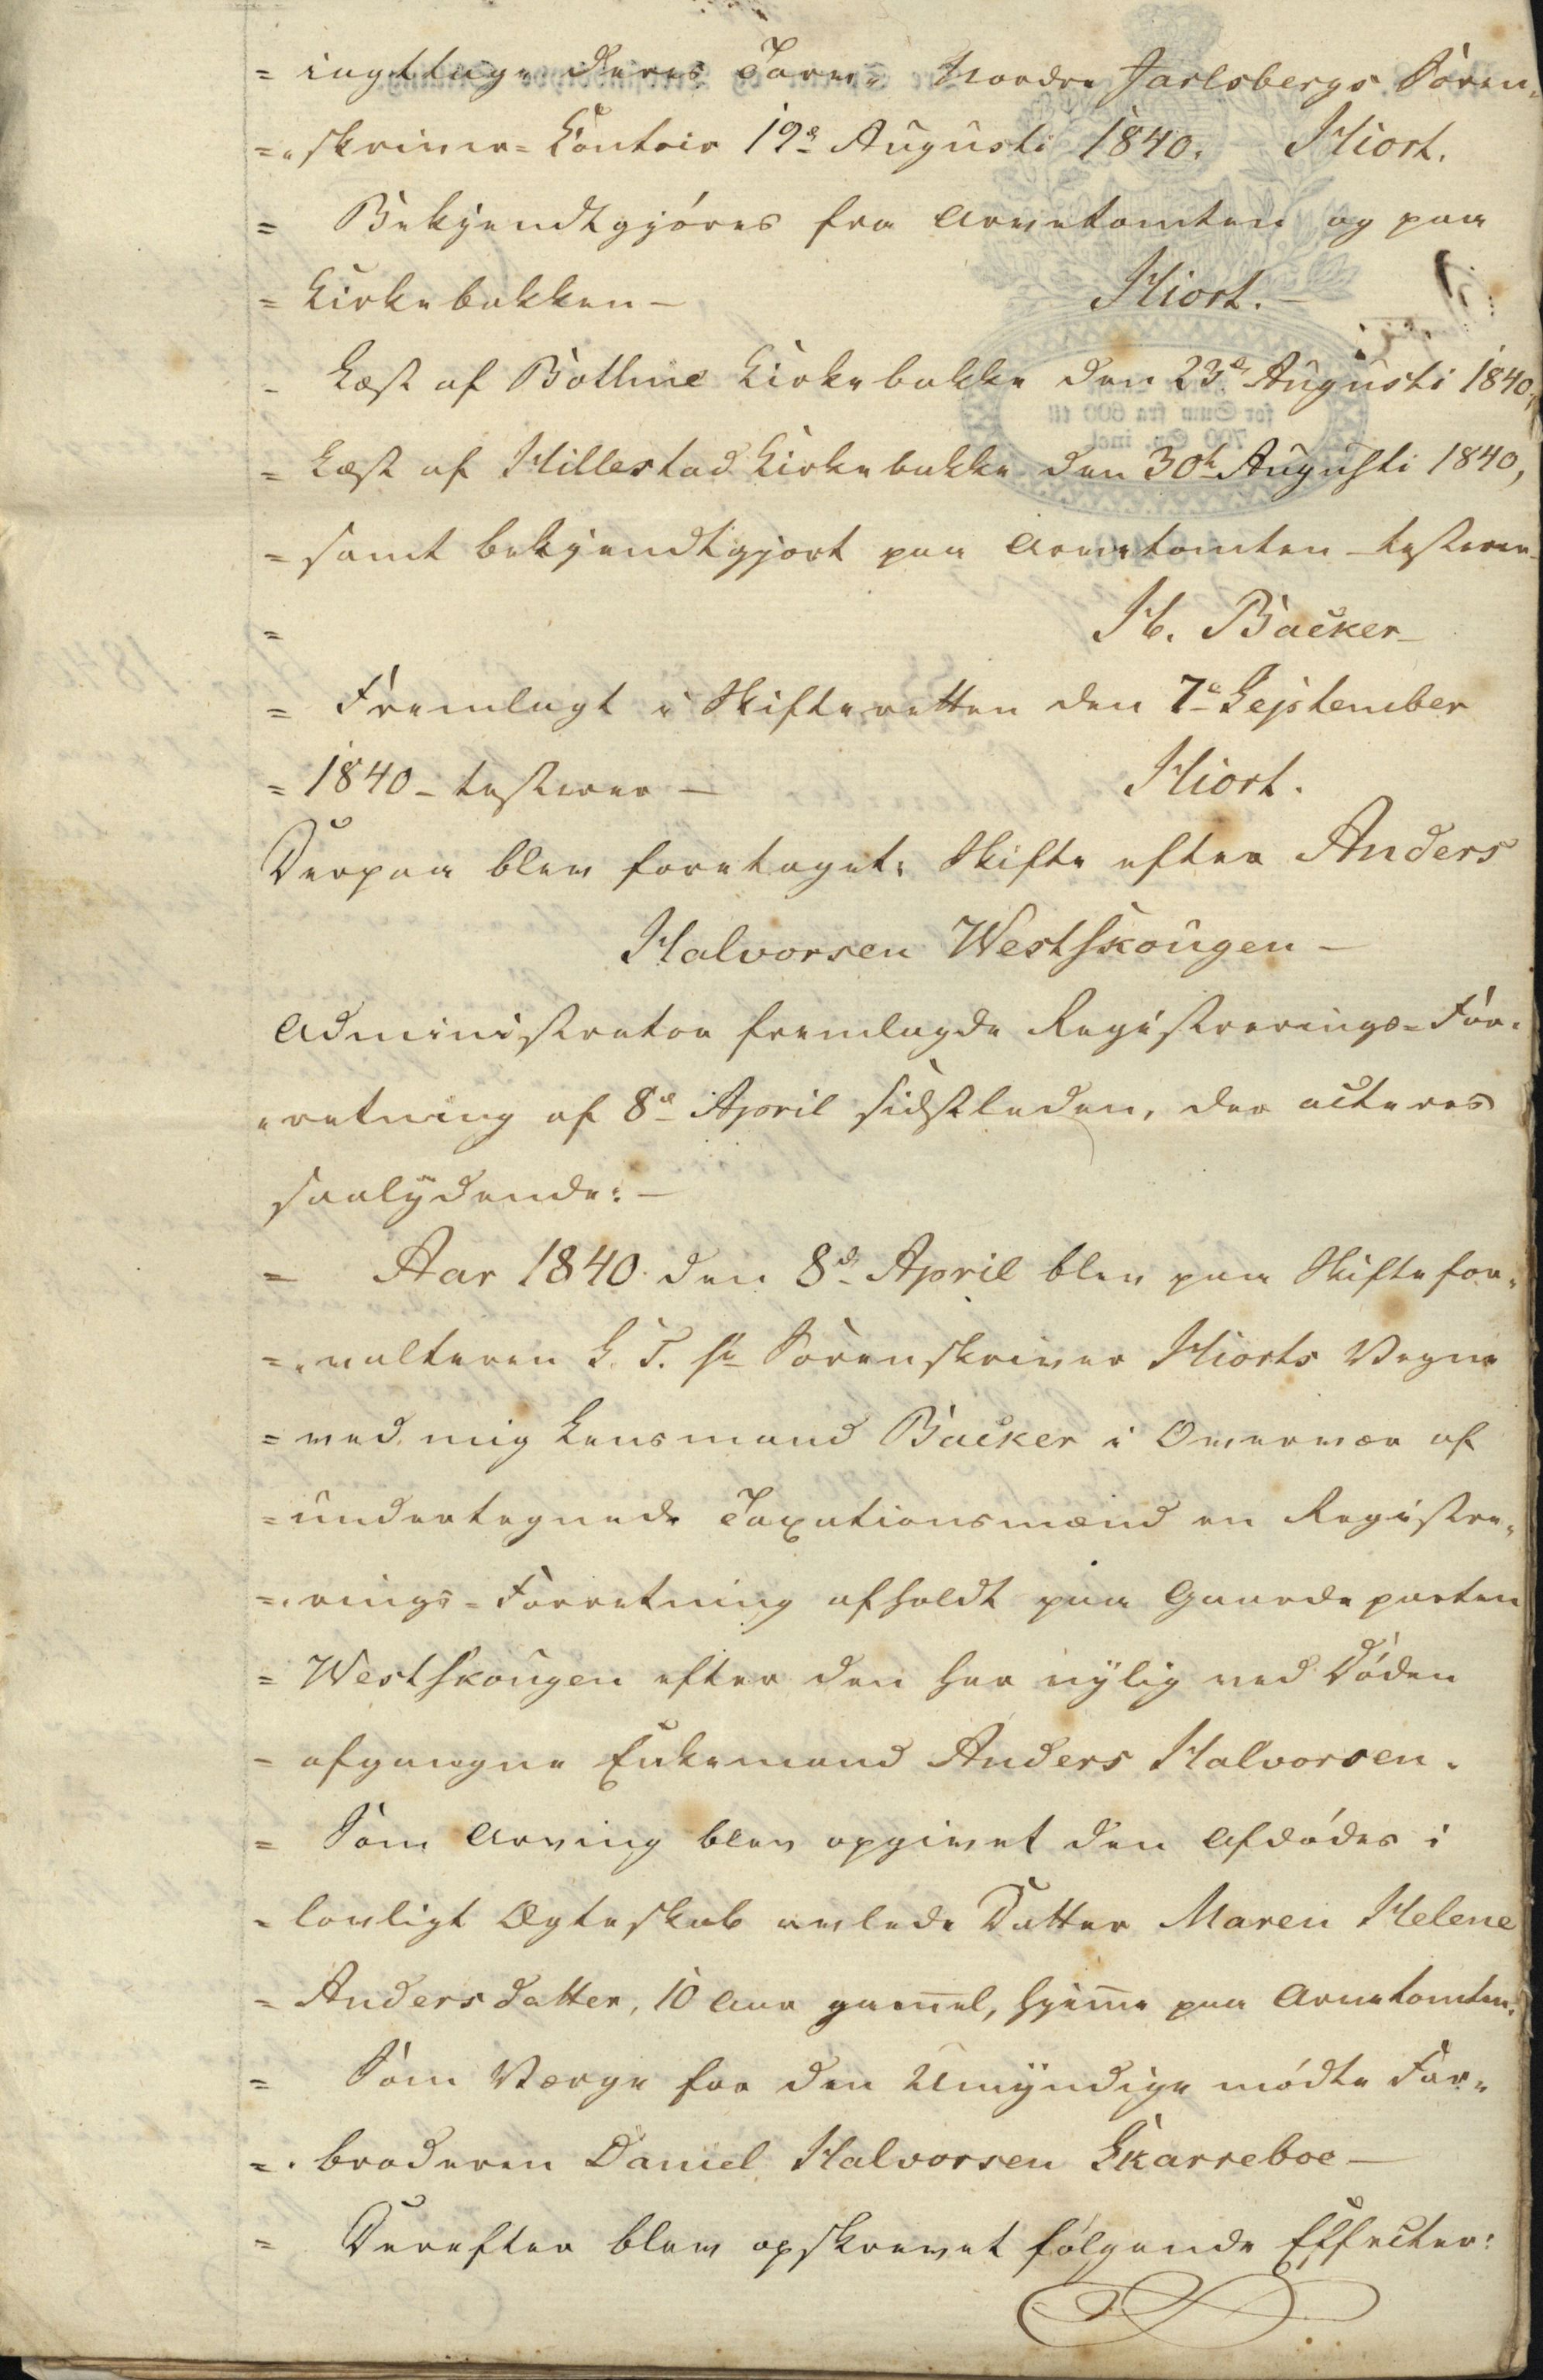 = iagttage deres Tarv. Nordre Jarlsbergs Soren-
= „skriver-Contoir 19de Augusti 1840. Hiort.
= Bekjendtgjóres fra Arvetomten og paa
= Kirkebakken – Hiort. –
= Læst af Bothne Kirkebakke den 23de Augusti 1840,
= Læst af Hillestad Kirkebakke den 30te Augusti 1840,
= samt bekjendtgjort paa Arvetomten – testerer –
= H. Backer –
= Fremlagt i Skifteretten den 7de September
= 1840 – testerer – Hiort.
Derpaa blev foretaget: Skifte efter Anders
Halvorsen Westskougen –
Administrator fremlagde Registrerings-For-
„retning af 8de April sidstleden, der acteres
saalydende: –
= Aar 1840 den 8de April blev paa Skiftefor-
= „valteren S. T. Hr Sorenskriver Hiorts Vegne
= ved mig Lensmand Backer i Overvær af
= undertegnede Taxationsmænd en Registre-
= „rings-Forretning afholdt paa Gaardeparten
= Westskougen efter den her nylig ved Dóden
= afgangne Enkemand Anders Halvorsen.
= Som Arving blev opgivet den Afdódes i
= lovligt Ægteskab avlede Datter Maren Helene
= Andersdatter, 10 Aar gam̅el, hjem̅e paa Arvetomten.
= Som Værge for den Umyndige módte Far-
= „broderen Daniel Halvorsen Skarreboe –
= Derefter blev opskrevet fólgende Effecter: